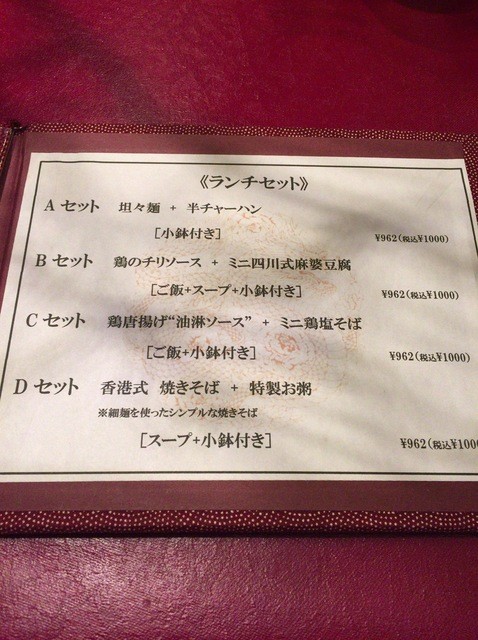 《ランチセット》
A セット 坦々麺 + 半チャーハン
[小鉢付き] ¥962(税込¥1000)
B セット 鶏のチリソース + ミニ四川式麻婆豆腐
[ご飯+スープ+小鉢付き] ¥962(税込¥1000)
C セット 鶏唐揚げ“油淋ソース” + ミニ鶏塩そば
[ご飯+小鉢付き] ¥962(税込¥1000)
D セット 香港式 焼きそば + 特製お粥
※細麺を使ったシンプルな焼きそば
[スープ+小鉢付き] ¥962(税込¥1000